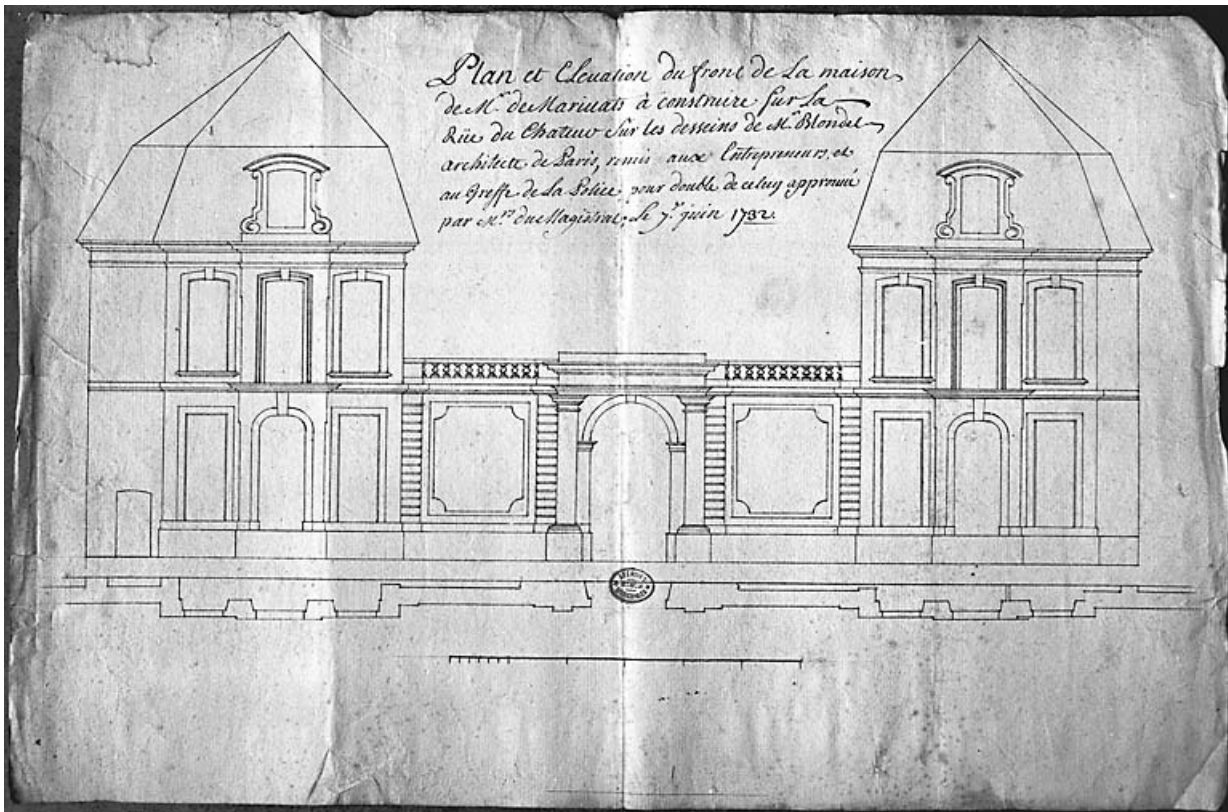 Plan et Elevation du front de La maison
de Mr. de Marivats à construire sur La
Rüe du Chateau sur les desseins de Mr. Blondel
architecte de Paris, remis aux Entrepreneurs, et
au Greffe de La Police pour double de celuy approuvé
par Mrs. du Magistrat; Le 7e. juin 1732.